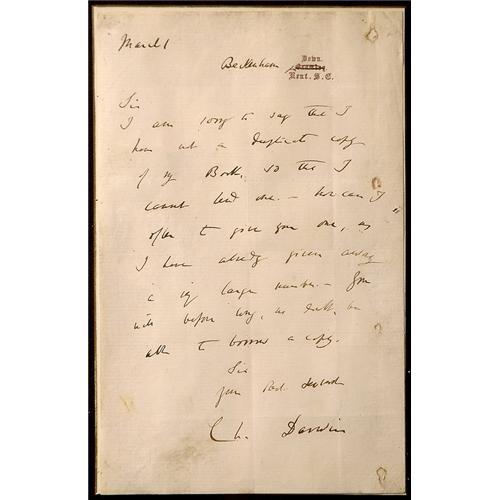 March 1
Down.
Beckenham Bromley
Kent. S.E.
Sir
I am sorry to say that I
have not a duplicate copy
of my Book, so that I
cannot lend one. — nor can I
offer to give you one, as
I have already given away
a very large number. — You
will before long, no doubt, be
able to borrow a copy.
Sir
your obedient servant
Ch. Darwin